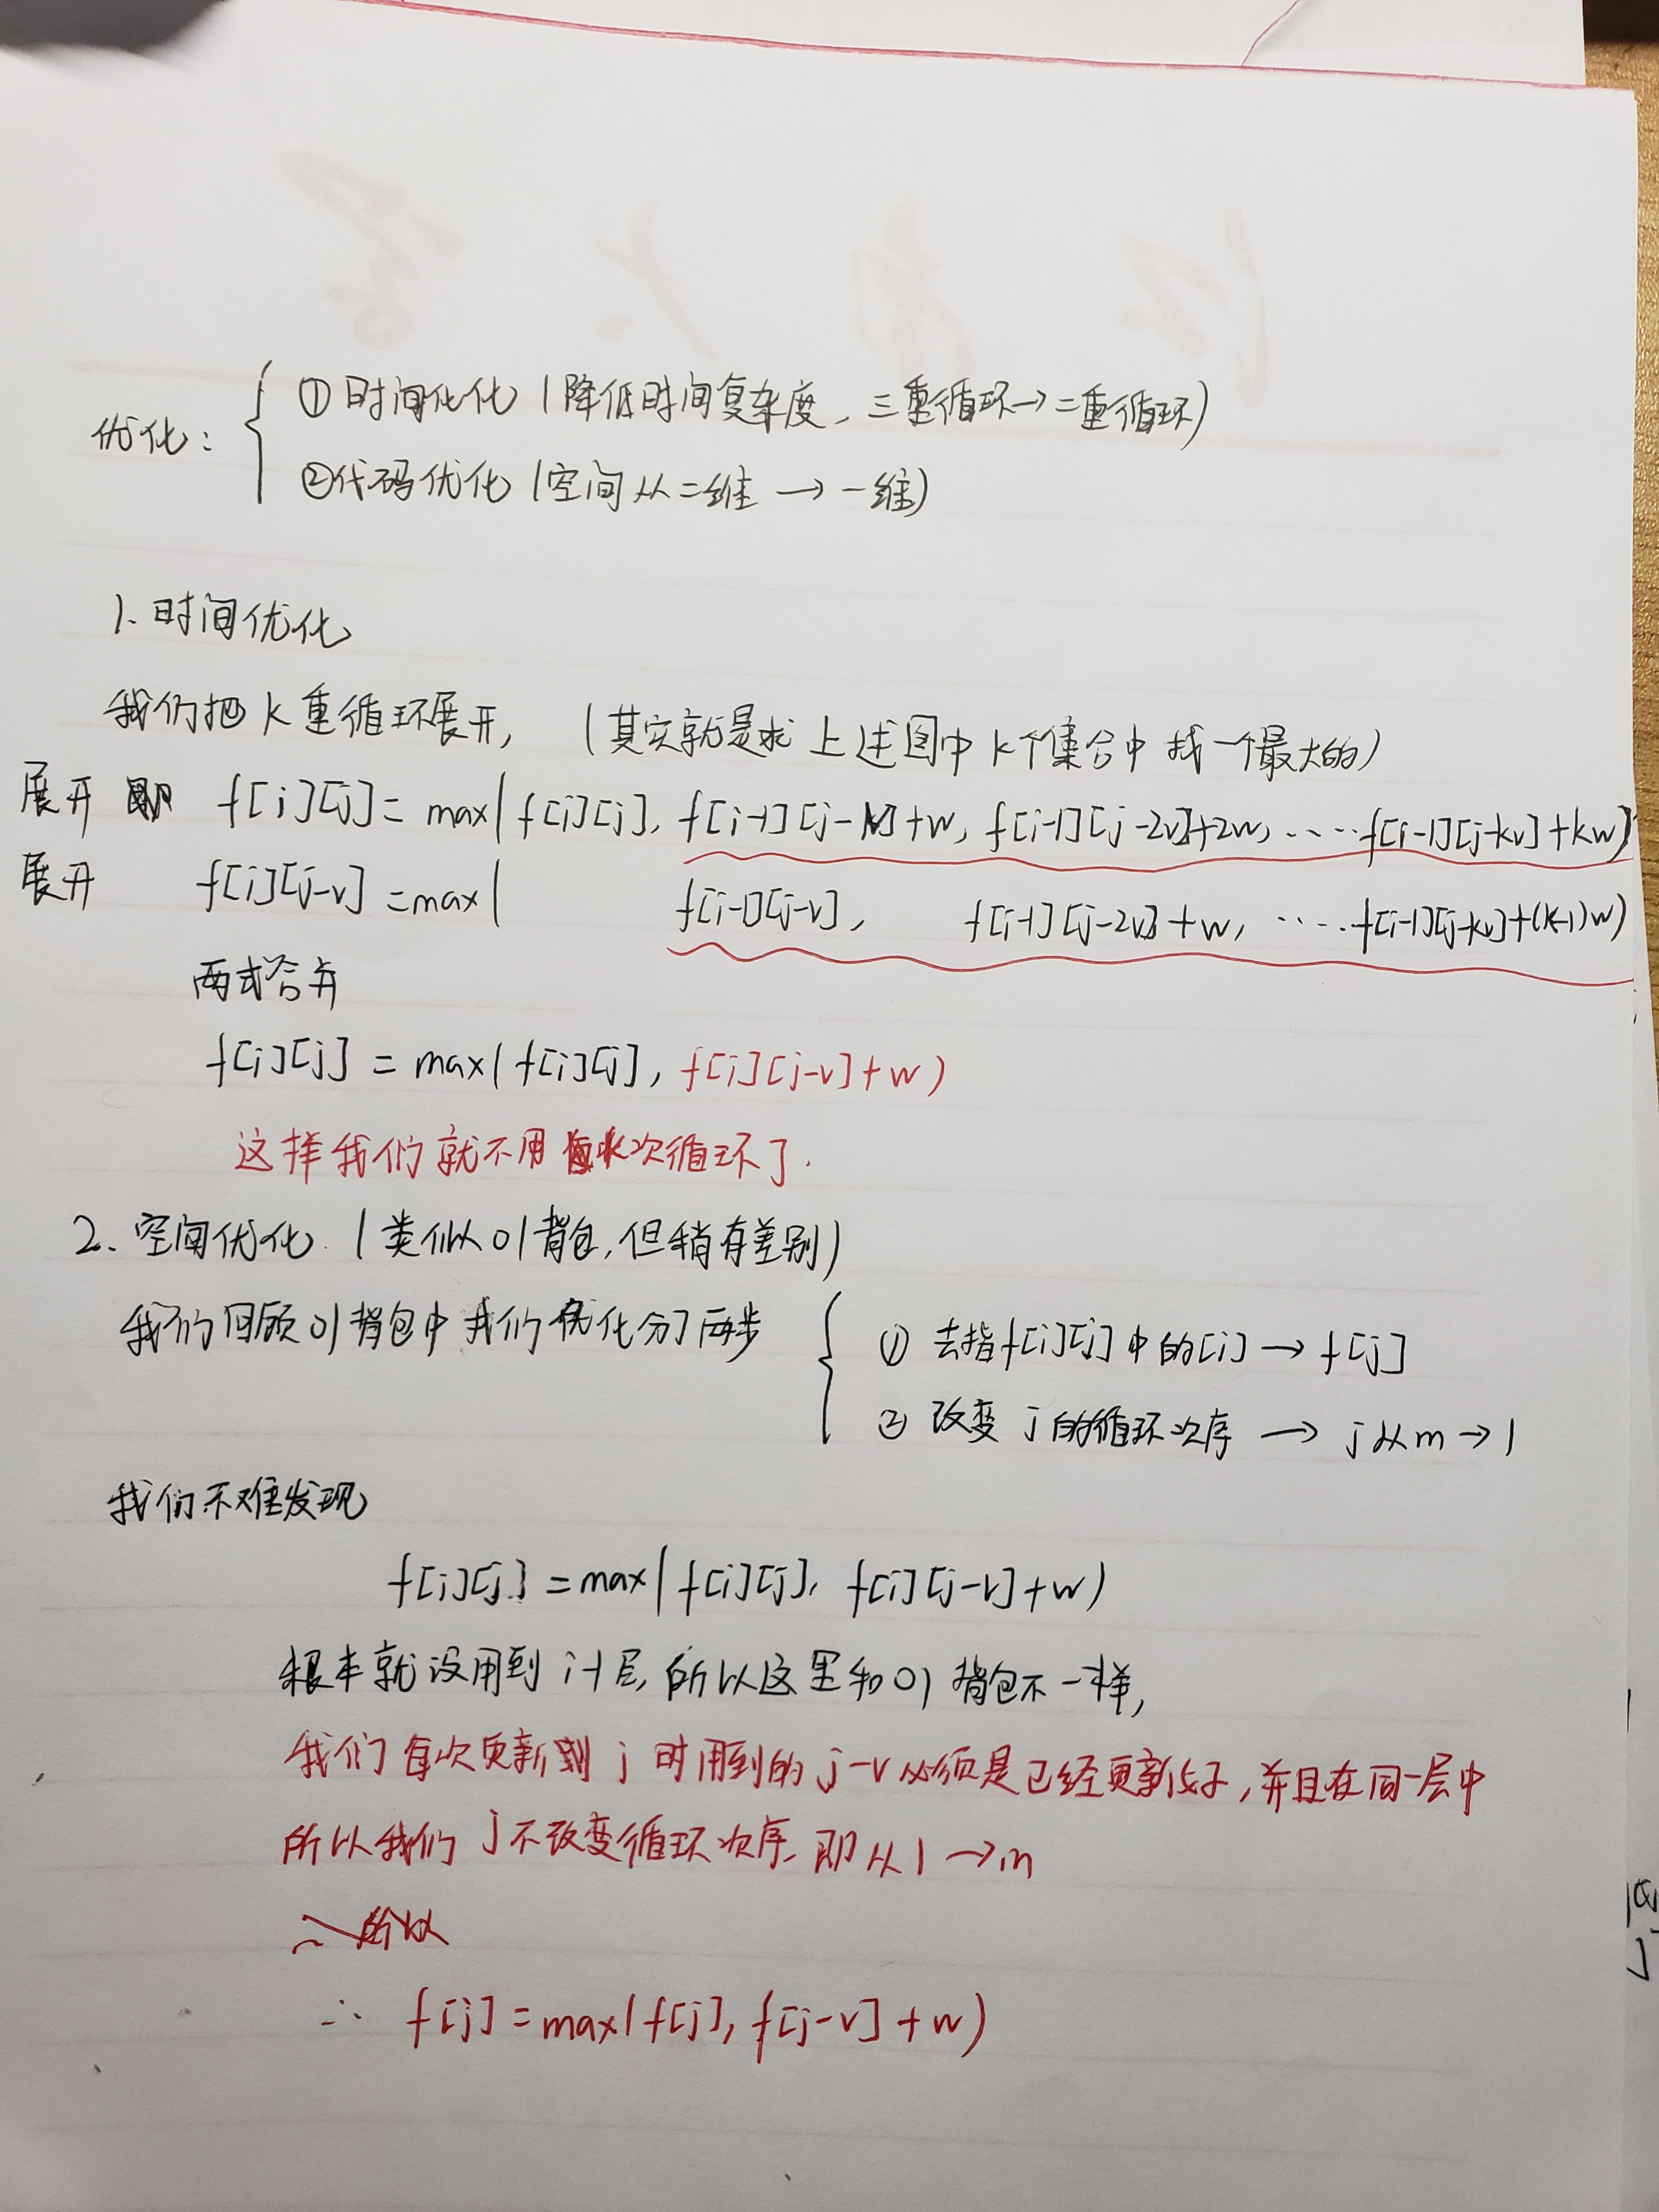 优化:
①时间化化(降低时间复杂度、三重循环→二重循环)
②代码优化(空间从二维→一维)
1.时间优化
我们把k重循环展开, (其实就是求上述图中k个集合中找一个最大的)
展开即 f[i][j]=max(f[i][j], f[i-1][j-v]+w, f[i-1][j-2v]+2w, ……f[i-1][j-kv]+kw)
展开 f[i][j-v]=max( f[i-1][j-v], f[i-1][j-2v]+w, ……f[i-1][j-kv]+(k-1)w)
两式合并
f[i][j]=max(f[i][j], f[i][j-v]+w)
这样我们就不用k次循环了.
2.空间优化.(类似01背包,但稍有差别)
我们回顾01背包中我们优化分了两步
①去指f[i][j]中的[i]→f[j]
②改变j的循环次序→j从m→1
我们不难发现
f[i][j]=max(f[i][j], f[i][j-v]+w)
根本就没用到i-1层,所以这里和01背包不一样,
我们每次更新到j时用到的j-v必须是已经更新好,并且在同一层中
所以我们j不改变循环次序,即从1→m
∴ f[j]=max(f[j], f[j-v]+w)